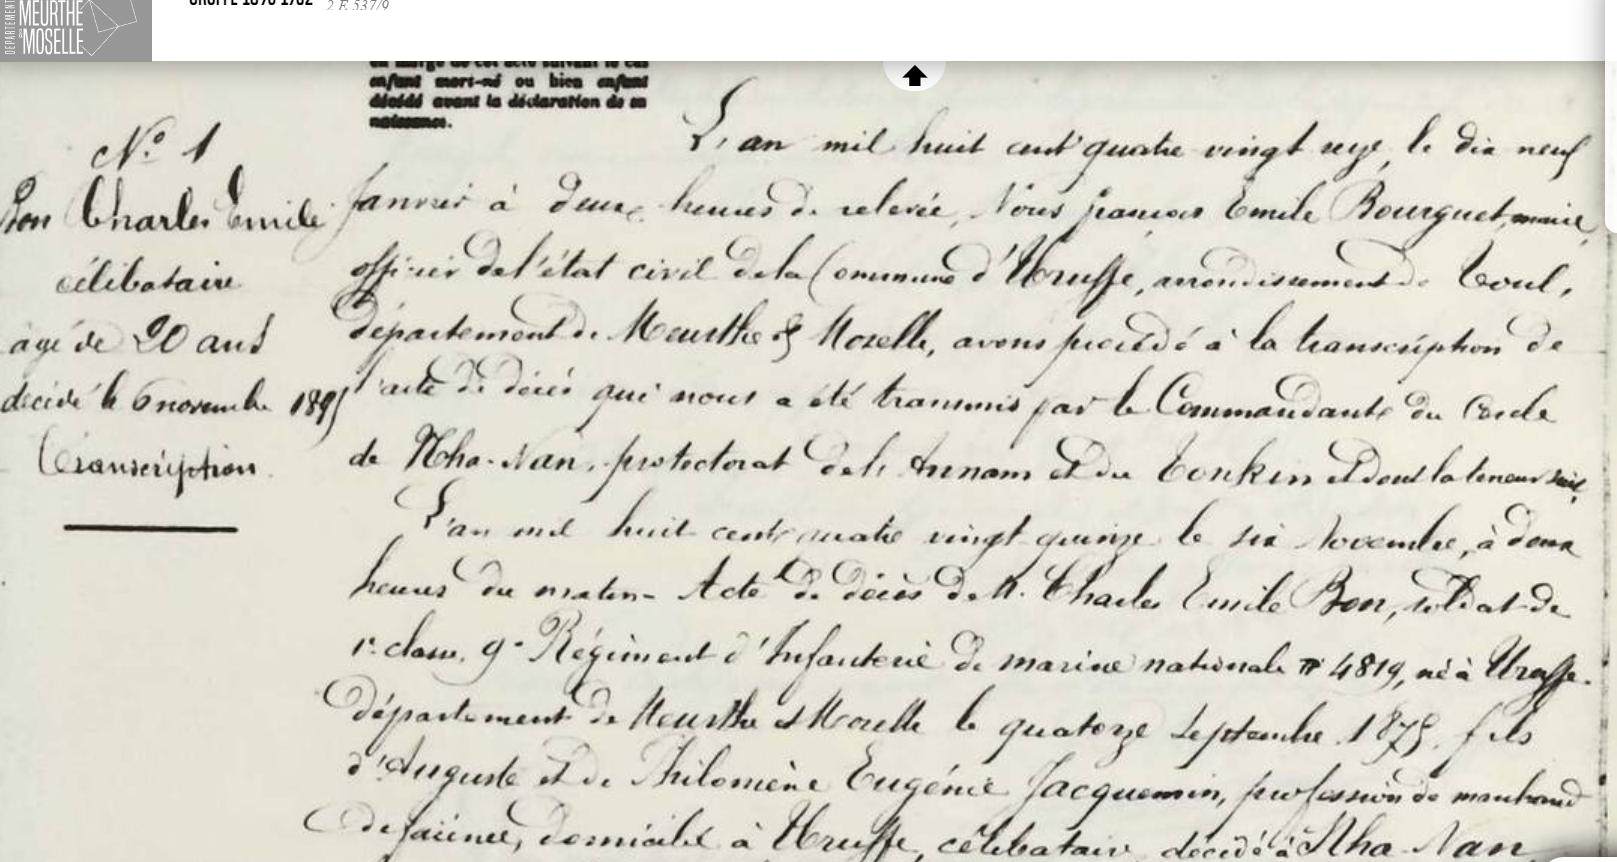 DEPARTEMENT
MEURTHE
& MOSELLE
2 E 537/9
en marge de cet acte suivant le cas
enfant mort-né ou bien enfant
décédé avant la déclaration de sa
naissance.
N° 1
Bon Charles Emile
célibataire
âgé de 20 ans
décédé le 6 novembre 1895
Transcription
L'an mil huit cent quatre vingt seize, le dix neuf
Janvier à deux heures de relevée, Nous françois Emile Bourguet, maire,
officier de l'état civil de la Commune d'Uruffe, arrondissement de Toul,
département de Meurthe & Mozelle, avons procédé à la transcription de
l'acte de décès qui nous a été transmis par le Commandant du Cercle
de Nha-Nan, protectorat de l'Annam et du Tonkin et dont la teneur suit,
L'an mil huit cent quatre vingt quinze le six Novembre, à deux
heures du matin - Acte de décès de M. Charles Emile Bon, soldat de
1e classe, 9e Régiment d'Infanterie de marine nationale n° 4819, né à Uruffe.
département de Meurthe et Mozelle le quatorze Septembre 1875, fils
d'Auguste et de Philomène Eugénie Jacquemin, profession de marchand
de faïence, domicilié à Uruffe, célibataire, décédé à Nha Nan